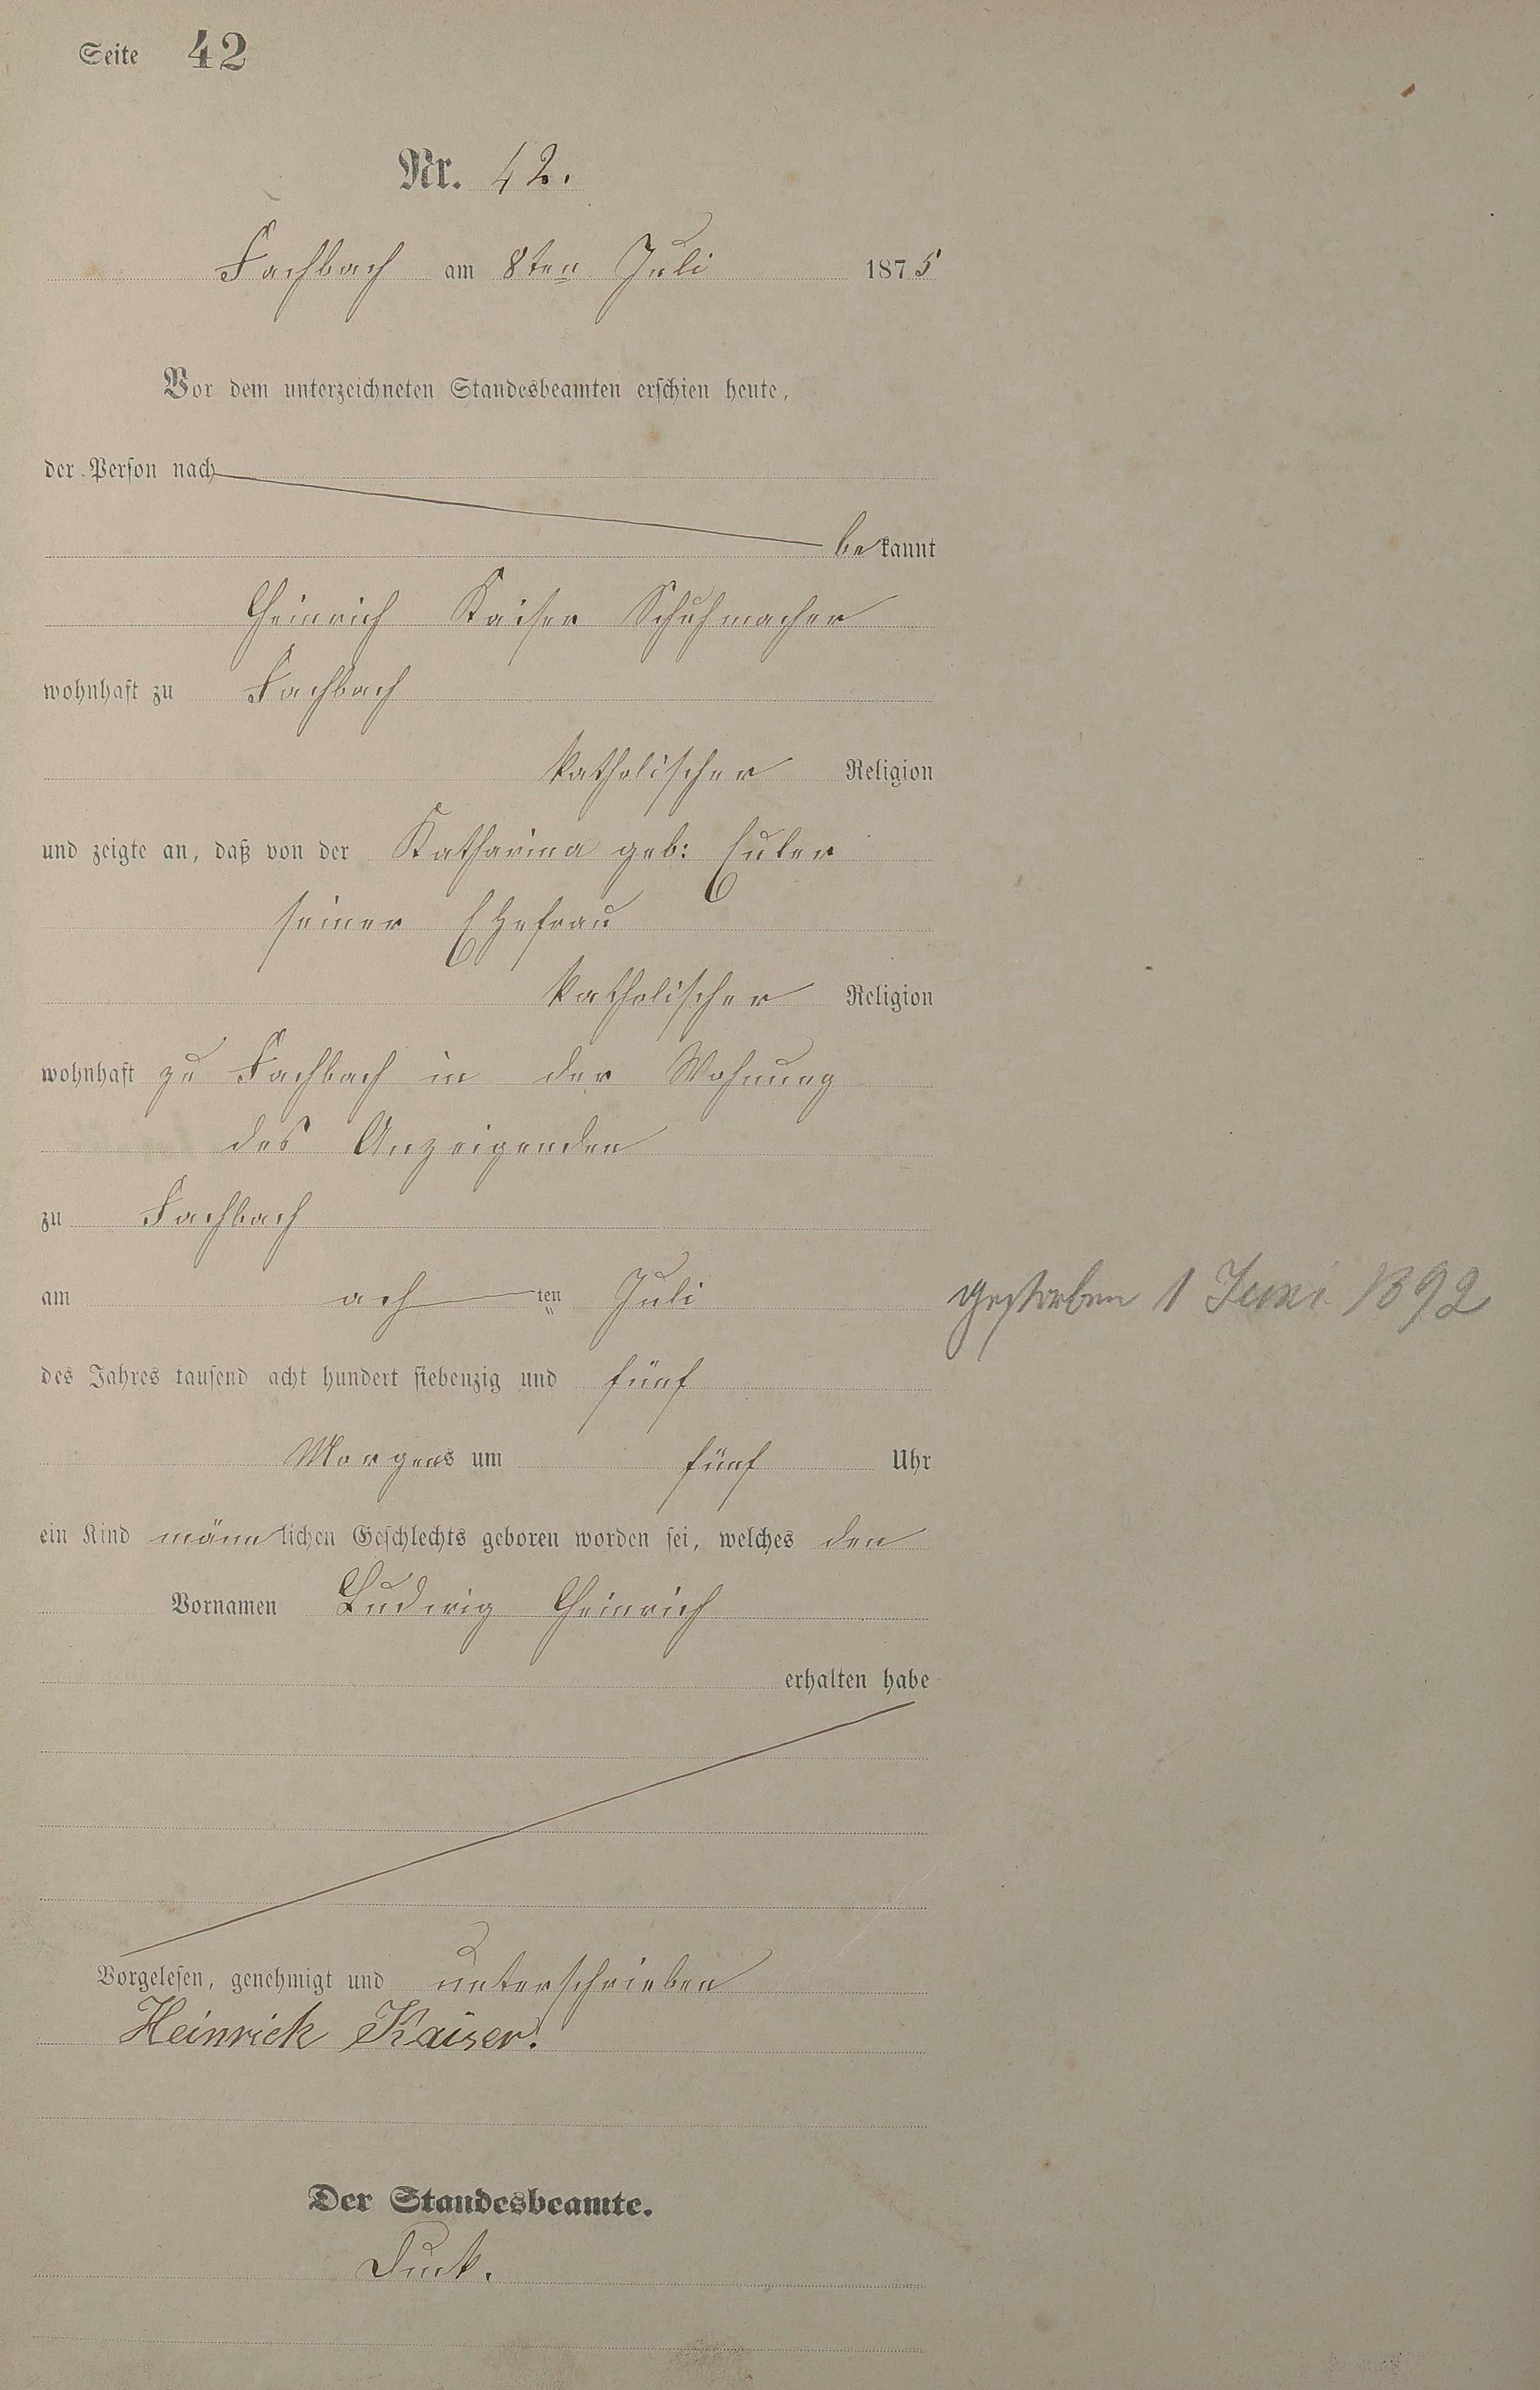 Seite 42
Nr. 42.
Fachbach am 8ten Juli 1875
Vor dem unterzeichneten Standesbeamten erschien heute,
der Person nach
bekannt
Heinrich Kaiser Schuhmacher
wohnhaft zu Fachbach
katholischer Religion
und zeigte an, daß von der Katharina geb: Euler
seiner Ehefrau
katholischer Religion
wohnhaft zu Fachbach in der Wohnung
des Anzeigenden
zu Fachbach
am ach ten Juli gestorben 1 Juni 1892
des Jahres tausend acht hundert siebenzig und fünf
Morgens um fünf Uhr
ein Kind männlichen Geschlechts geboren worden sei, welches den
Vornamen Ludwig Heinrich
erhalten habe
Vorgelesen, genehmigt und unterschrieben
Heinrich Kaiser.
Der Standesbeamte.